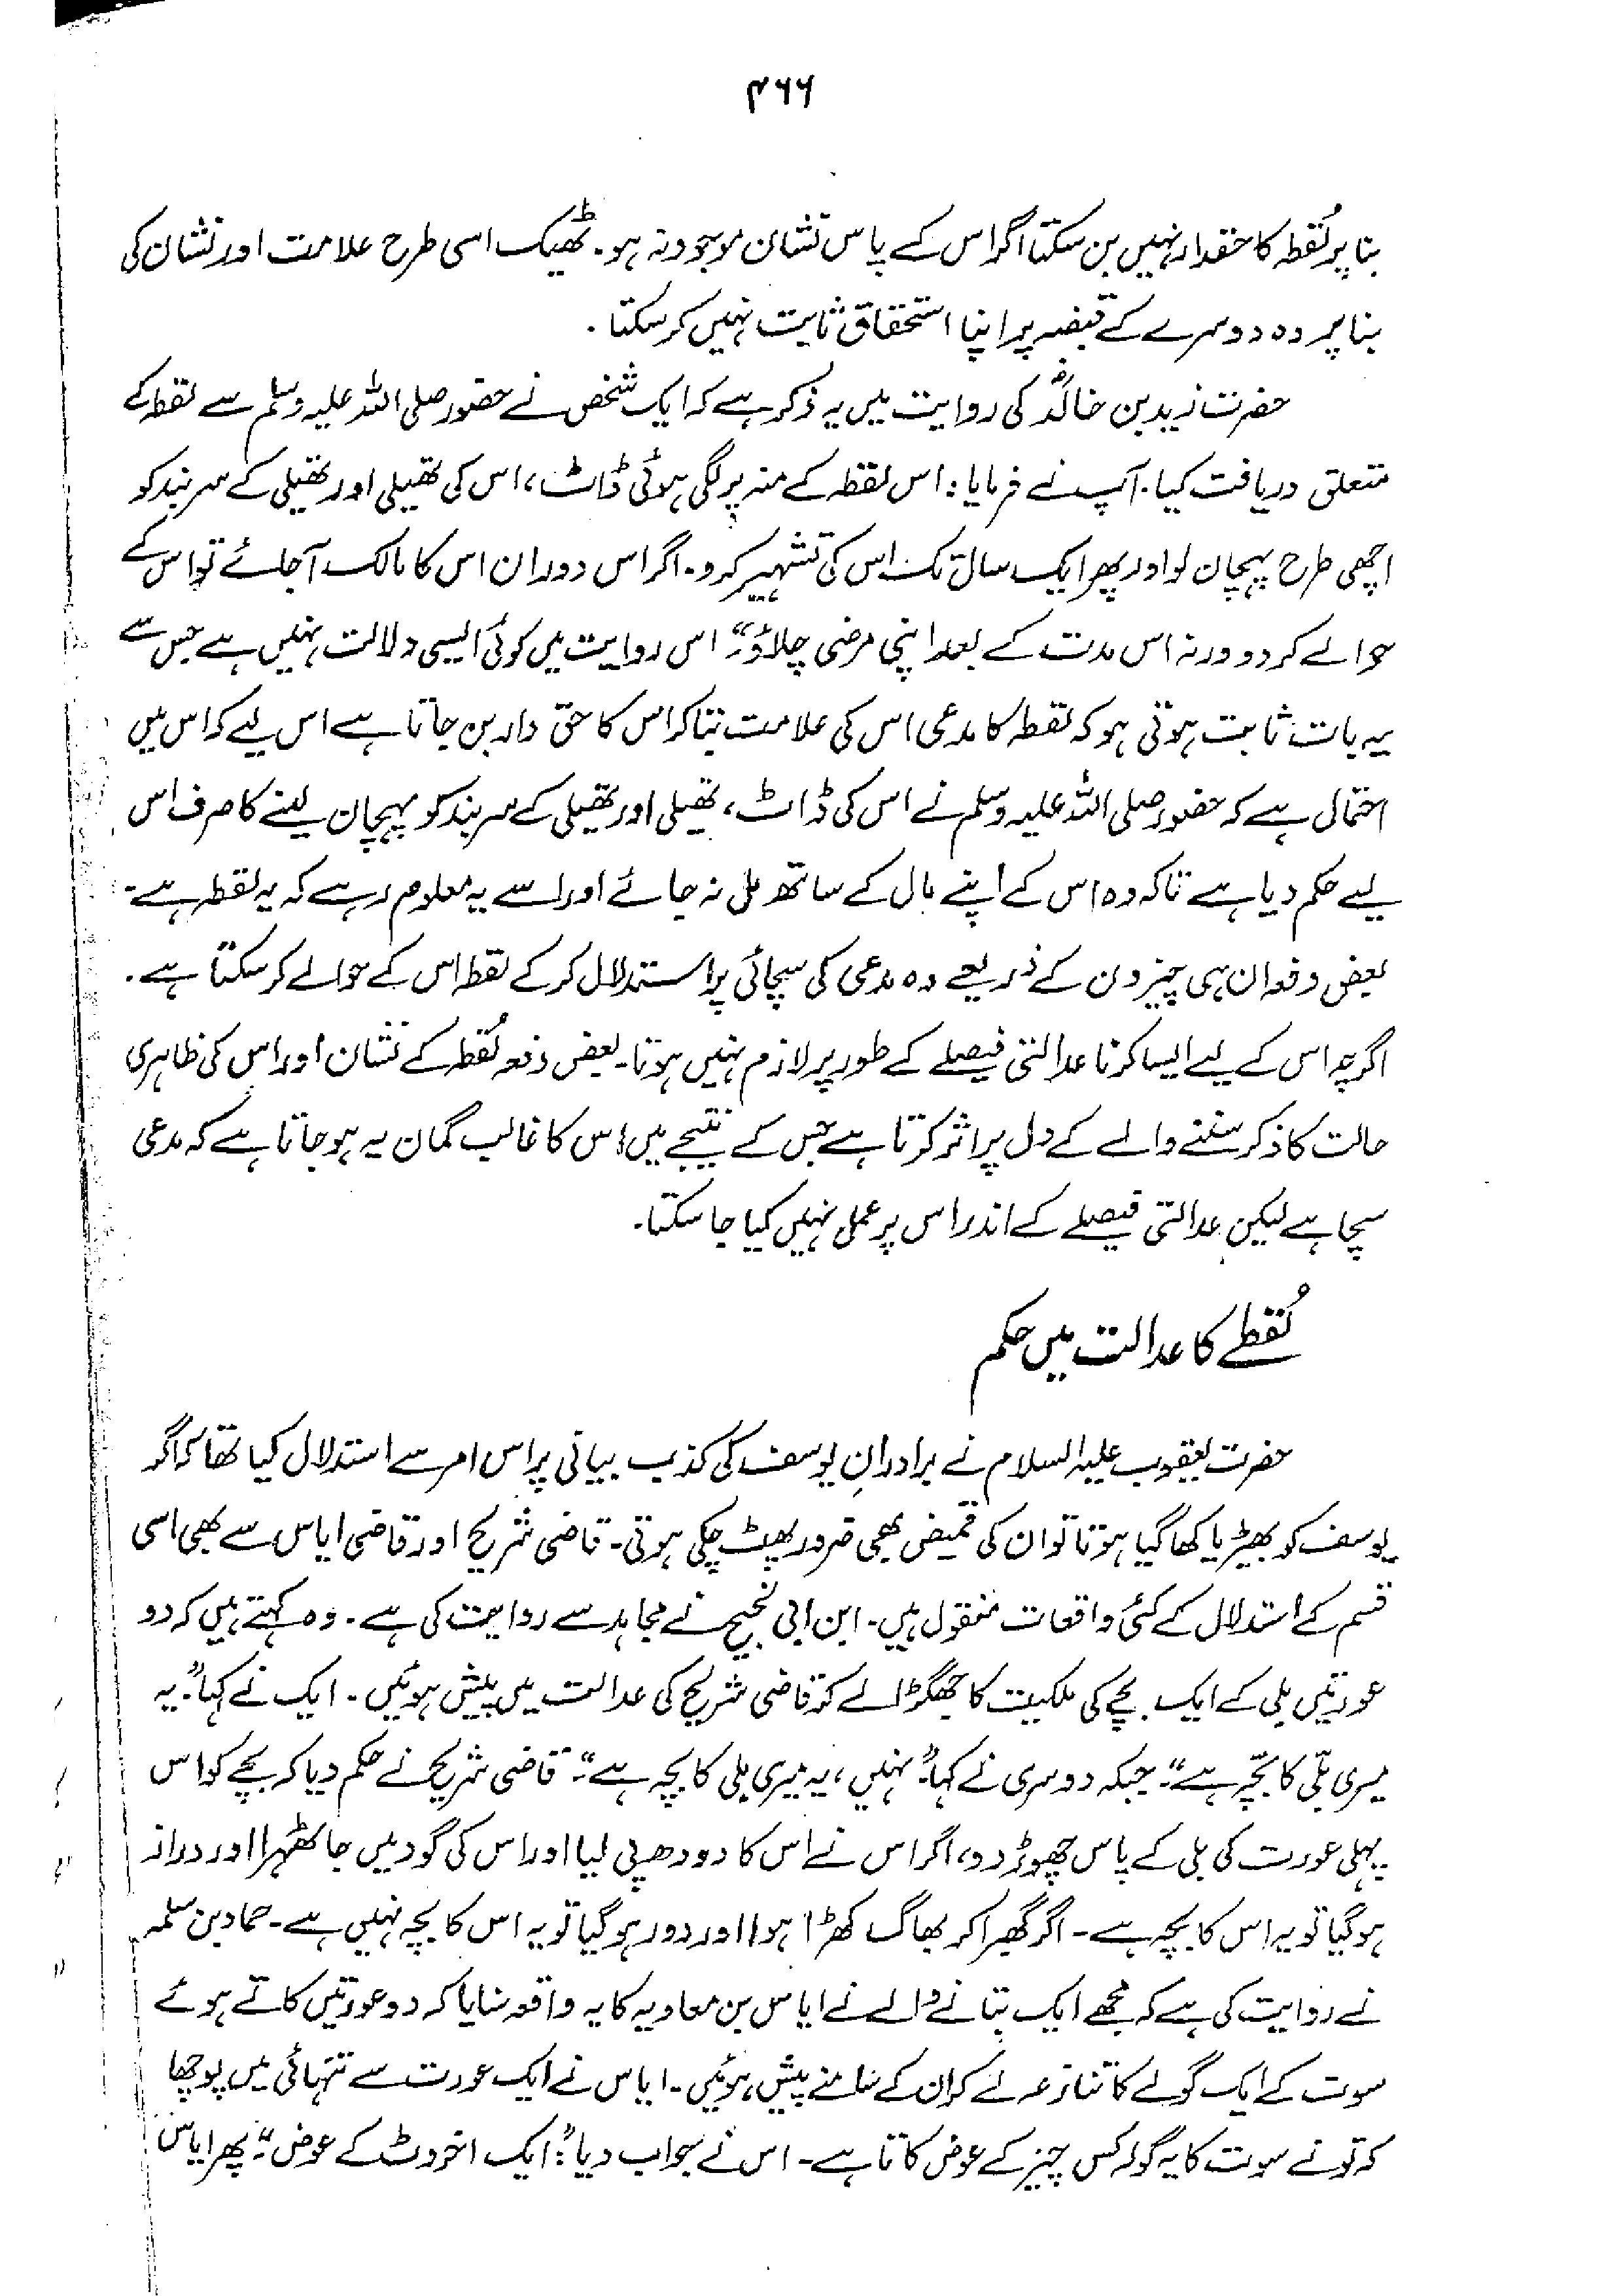 ۴۶۶
بنا پر لُقطہ کا حقدار نہیں بن سکتا اگر اس کے پاس نشان موجود نہ ہو۔ ٹھیک اسی طرح علامت اور نشان کی
بنا پر وہ دوسرے کے قبضہ پر اپنا استحقاق ثابت نہیں کر سکتا ۔
حضرت زید بن خالدؓ کی روایت میں یہ ذکر ہے کہ ایک شخص نے حضور صلی اللہ علیہ وسلم سے لقطہ کے
متعلق دریافت کیا۔ آپ نے فرمایا: اس لقطہ کے منہ پر لگی ہوئی ڈاٹ، اس کی تھیلی اور تھیلی کے سربند کو
اچھی طرح پہچان لو اور پھر ایک سال تک اس کی تشہیر کرو۔ اگر اس دوران اس کا مالک آجائے تو اس کے
حوالے کر دو ورنہ اس مدت کے بعد اپنی مرضی چلاؤ"۔ اس روایت میں کوئی ایسی دلالت نہیں ہے جس سے
یہ بات ثابت ہوتی ہو کہ لقطہ کا مدعی اس کی علامت بتا کر اس کا حق دار بن جاتا ہے اس لیے کہ اس میں
احتمال ہے کہ حضور صلی اللہ علیہ وسلم نے اس کی ڈاٹ، تھیلی اور تھیلی کے سربند کو پہچان لینے کا صرف اس
لیے حکم دیا ہے تاکہ وہ اس کے اپنے مال کے ساتھ مل نہ جائے اور اسے یہ معلوم رہے کہ یہ لقطہ ہے۔
بعض دفعہ ان ہی چیزوں کے ذریعے وہ مدعی کی سچائی پر استدلال کر کے لقطہ اس کے حوالے کر سکتا ہے۔
اگرچہ اس کے لیے ایسا کرنا عدالتی فیصلے کے طور پر لازم نہیں ہوتا۔ بعض دفعہ لُقطہ کے نشان اور اس کی ظاہری
حالت کا ذکر سننے والے کے دل پر اثر کرتا ہے جس کے نتیجے میں اس کا غالب گمان یہ ہو جاتا ہے کہ مدعی
سچا ہے لیکن عدالتی فیصلے کے اندر اس پر عمل نہیں کیا جا سکتا۔
لُقطے کا عدالت میں حکم
حضرت یعقوب علیہ السلام نے برادرانِ یوسف کی کذب بیانی پر اس امر سے استدلال کیا تھا کہ اگر
یوسف کو بھیڑیا کھا گیا ہوتا تو ان کی قمیض بھی ضرور پھٹ چکی ہوتی۔ قاضی شریح اور قاضی ایاس سے بھی اسی
قسم کے استدلال کے کئی واقعات منقول ہیں۔ ابن ابی نجیح نے مجاہد سے روایت کی ہے۔ وہ کہتے ہیں کہ دو
عورتیں بلی کے ایک بچے کی ملکیت کا جھگڑا لے کر قاضی شریح کی عدالت میں پیش ہوئیں۔ ایک نے کہا: "یہ
میری بلّی کا بچّہ ہے"۔ جبکہ دوسری نے کہا: "نہیں، یہ میری بلی کا بچہ ہے"۔ قاضی شریح نے حکم دیا کہ بچے کو اس
پہلی عورت کی بلی کے پاس چھوڑ دو، اگر اس نے اس کا دودھ پی لیا اور اس کی گود میں جا ٹھہرا اور دراز
ہو گیا تو یہ اس کا بچہ ہے۔ اگر گھبرا کر بھاگ کھڑا ہوا اور دور ہو گیا تو یہ اس کا بچہ نہیں ہے۔ حماد بن سلمہ
نے روایت کی ہے کہ مجھے ایک بتانے والے نے ایاس بن معاویہ کا یہ واقعہ سنایا کہ دو عورتیں کاتے ہوئے
سوت کے ایک گولے کا تنازعہ لے کر ان کے سامنے پیش ہوئیں۔ ایاس نے ایک عورت سے تنہائی میں پوچھا
کہ تو نے سوت کا یہ گولہ کس چیز کے عوض کاتا ہے۔ اس نے جواب دیا: "ایک اخروٹ کے عوض"۔ پھر ایاس